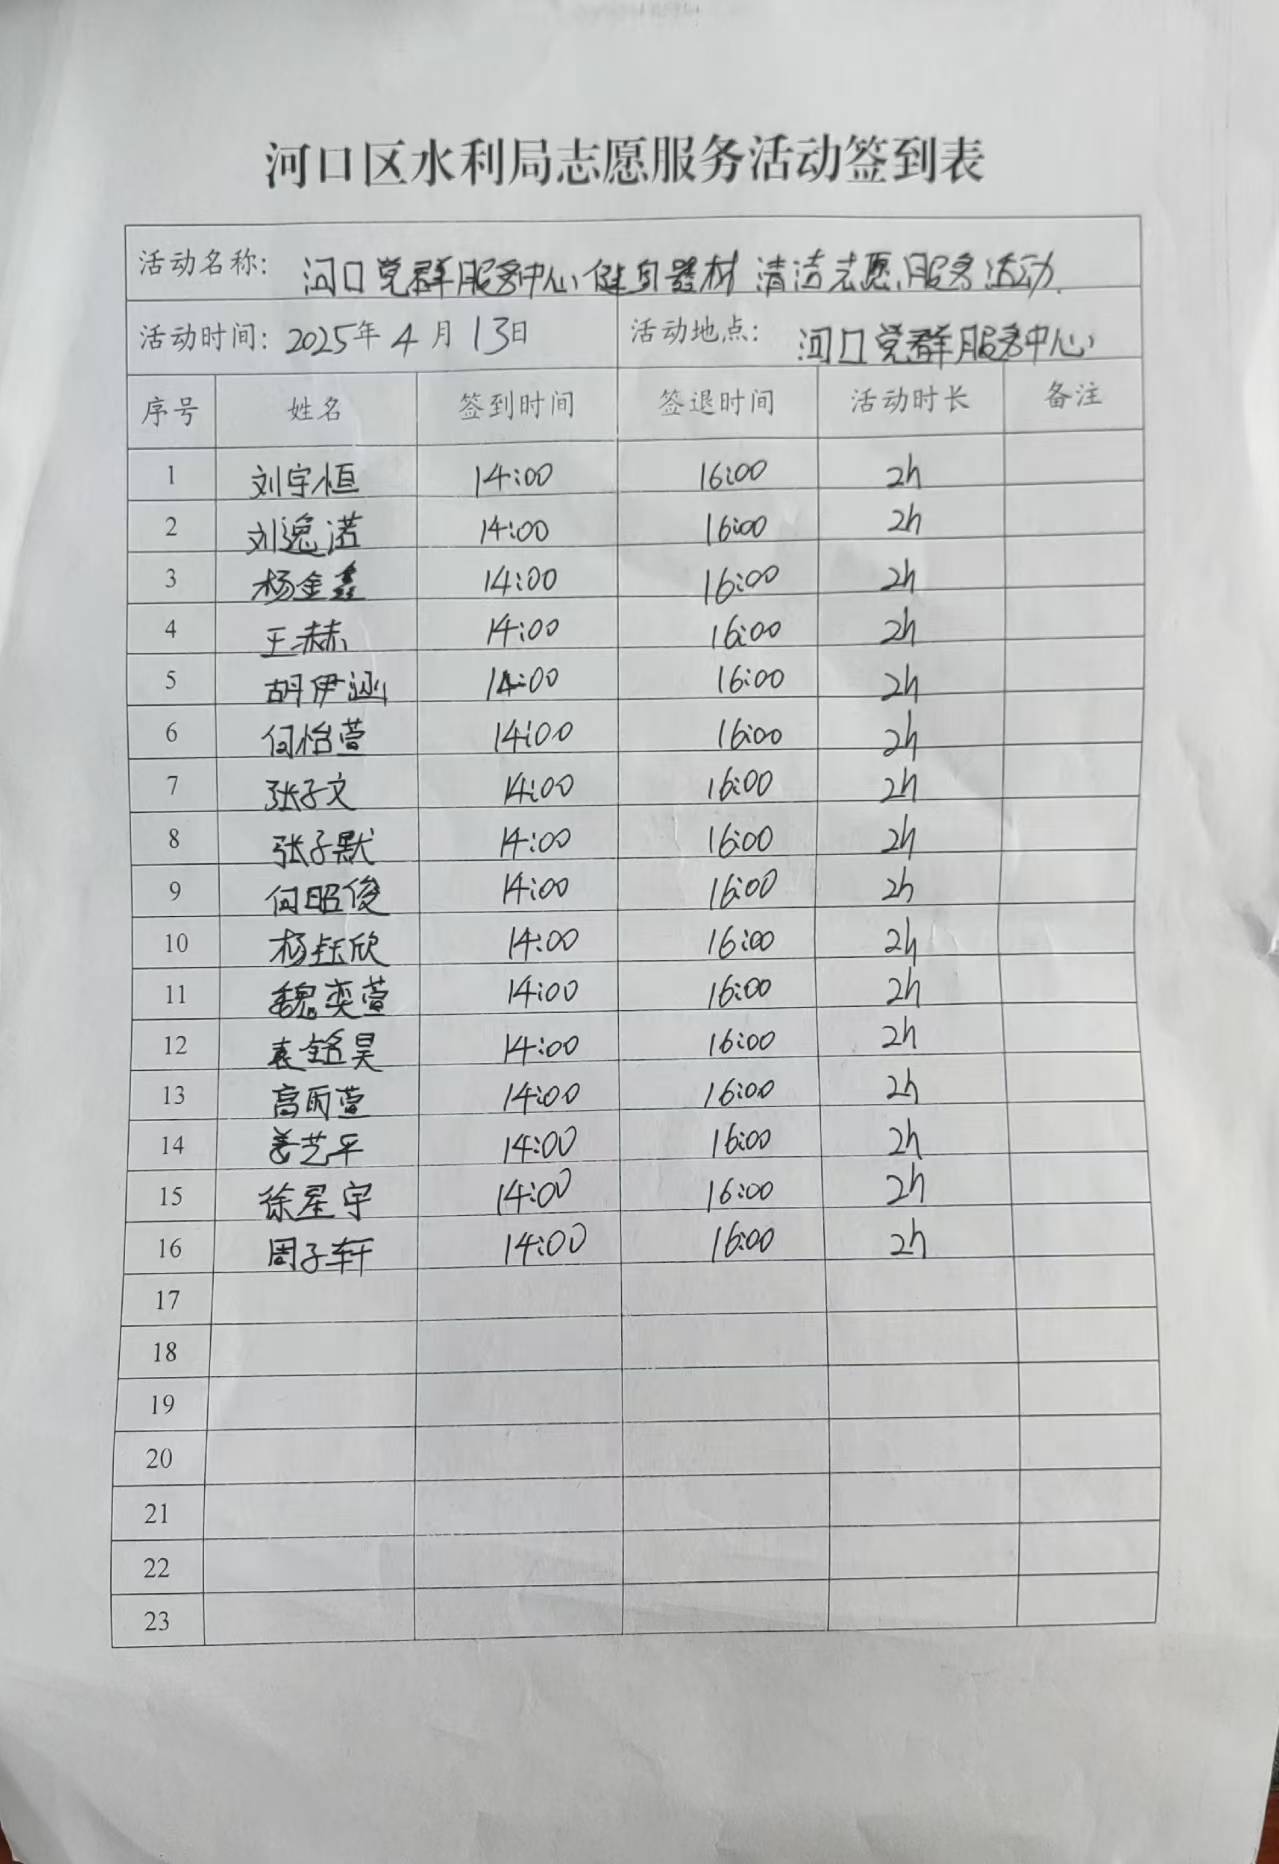 河口区水利局志愿服务活动签到表
活动名称: 河口党群服务中心健身器材清洁志愿服务活动.
活动时间: 2025年4月13日 活动地点: 河口党群服务中心
序号 姓名 签到时间 签退时间 活动时长 备注
1 刘宇恒 14:00 16:00 2h
2 刘逸诺 14:00 16:00 2h
3 杨金鑫 14:00 16:00 2h
4 王赫 14:00 16:00 2h
5 胡伊涵 14:00 16:00 2h
6 何怡萱 14:00 16:00 2h
7 张子文 14:00 16:00 2h
8 张子默 14:00 16:00 2h
9 何昭俊 14:00 16:00 2h
10 杨钰欣 14:00 16:00 2h
11 魏奕萱 14:00 16:00 2h
12 袁铭昊 14:00 16:00 2h
13 高雨萱 14:00 16:00 2h
14 姜艺平 14:00 16:00 2h
15 徐星宇 14:00 16:00 2h
16 周子轩 14:00 16:00 2h
17
18
19
20
21
22
23